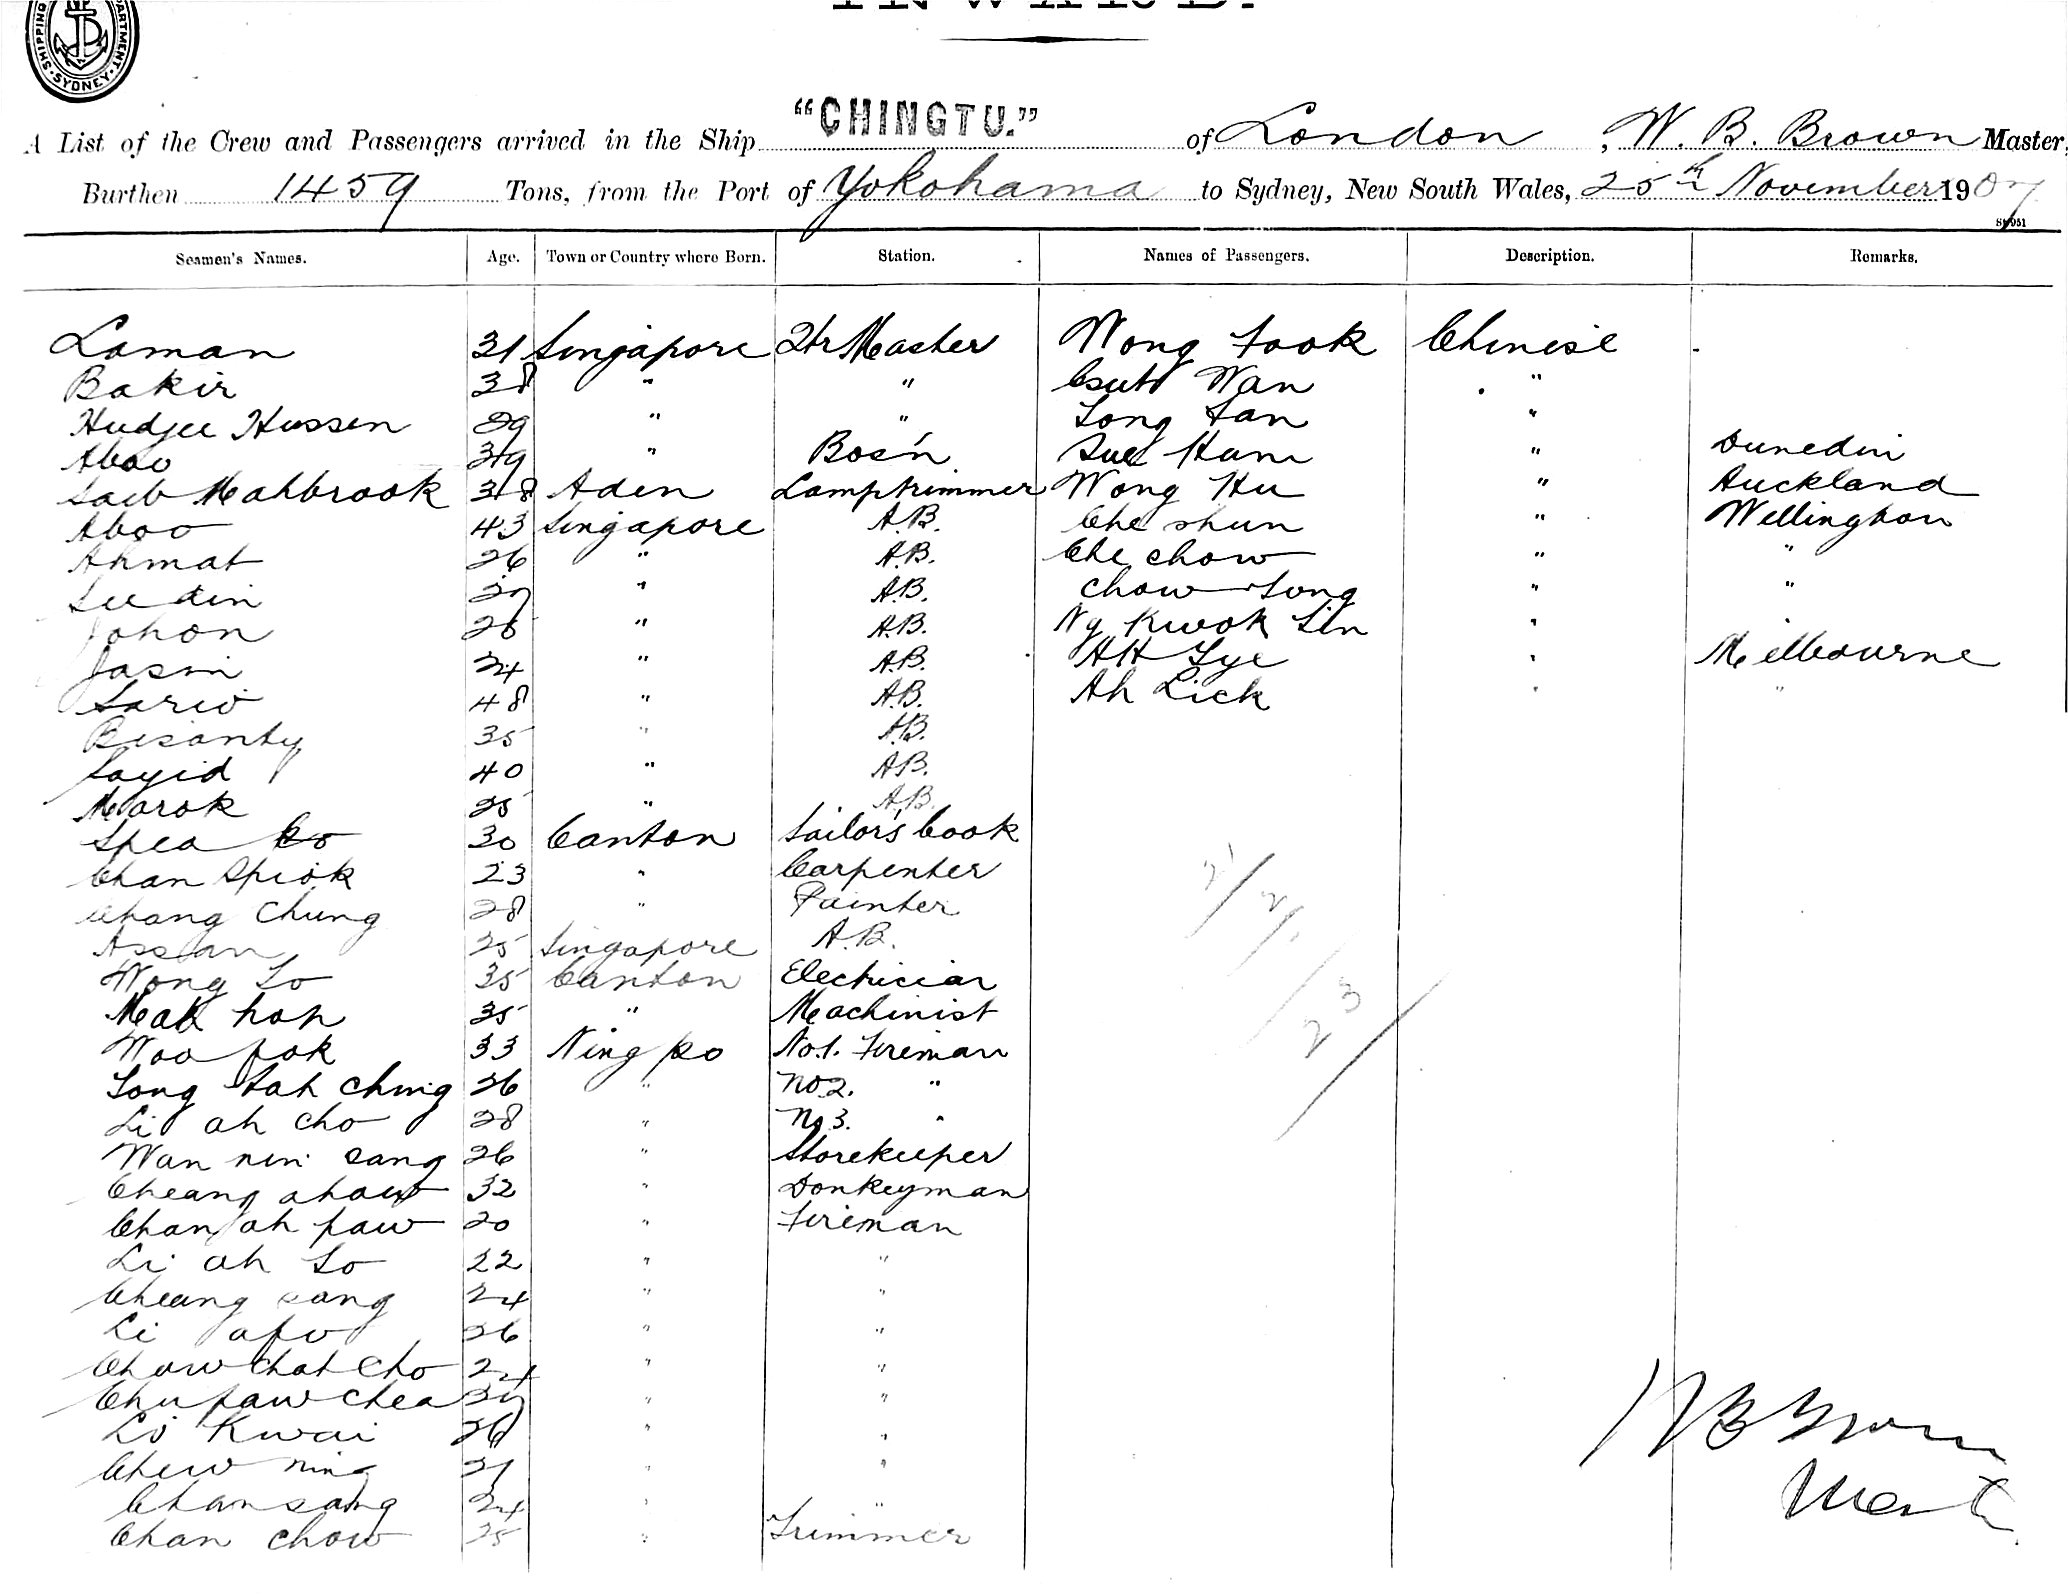 INWARD.
SHIPPING DEPARTMENT. SYDNEY.
"CHINGTU."
A List of the Crew and Passengers arrived in the Ship of London, W. B. Brown Master,
Burthen 1459 Tons, from the Port of Yokohama to Sydney, New South Wales, 25th November 1907
Seamen's Names. Age. Town or Country where Born. Station. Names of Passengers. Description. Remarks.
Laman 31 Singapore Qtr Master Wong Fook Chinese
Bakir 38 " " Wan "
Hudjee Hussen 29 " " Long "
Aboo 39 " Bos'n Sue Ham " Dunedin
Saib Mahbrook 38 Aden Lamptrimmer Wong Hu " Auckland
Aboo 43 Singapore A.B. Che shun " Wellington
Ahmat 26 " A.B. Che chow " "
Seedin " A.B. chow " "
Johon 26 " A.B. Ng Kwok Sin "
Jasin 24 " A.B. AH " Melbourne
Sario 48 " A.B. Ah Lick " "
Bisanty 35 " A.B.
Sayid 40 " A.B.
Marok 25 " A.B.
Spea ko 30 Canton Sailor's Cook
Chan Spiok 23 " Carpenter
Chang Chung 28 " Painter
Assan 25 Singapore A.B.
Wong So 35 Canton Electrician
Mak hop 35 " Machinist
Woo pok 33 Ning po No.1. Fireman
Song tah ching 26 " No2. "
Li ah cho 28 " No3. "
Wan nin sang 26 " Storekeeper
Cheang ahow 32 " Donkeyman
Chan ah paw 20 " Fireman
Li ah so 22 " "
Cheang sang 24 " "
Li afo 26 " "
Chow chat cho 24 " "
Chu paw chea " "
Li Kwai 26 " "
Chew ning 21 " "
Chan sang 24 " "
Chan chow 25 " Trimmer
W B Brown
Master